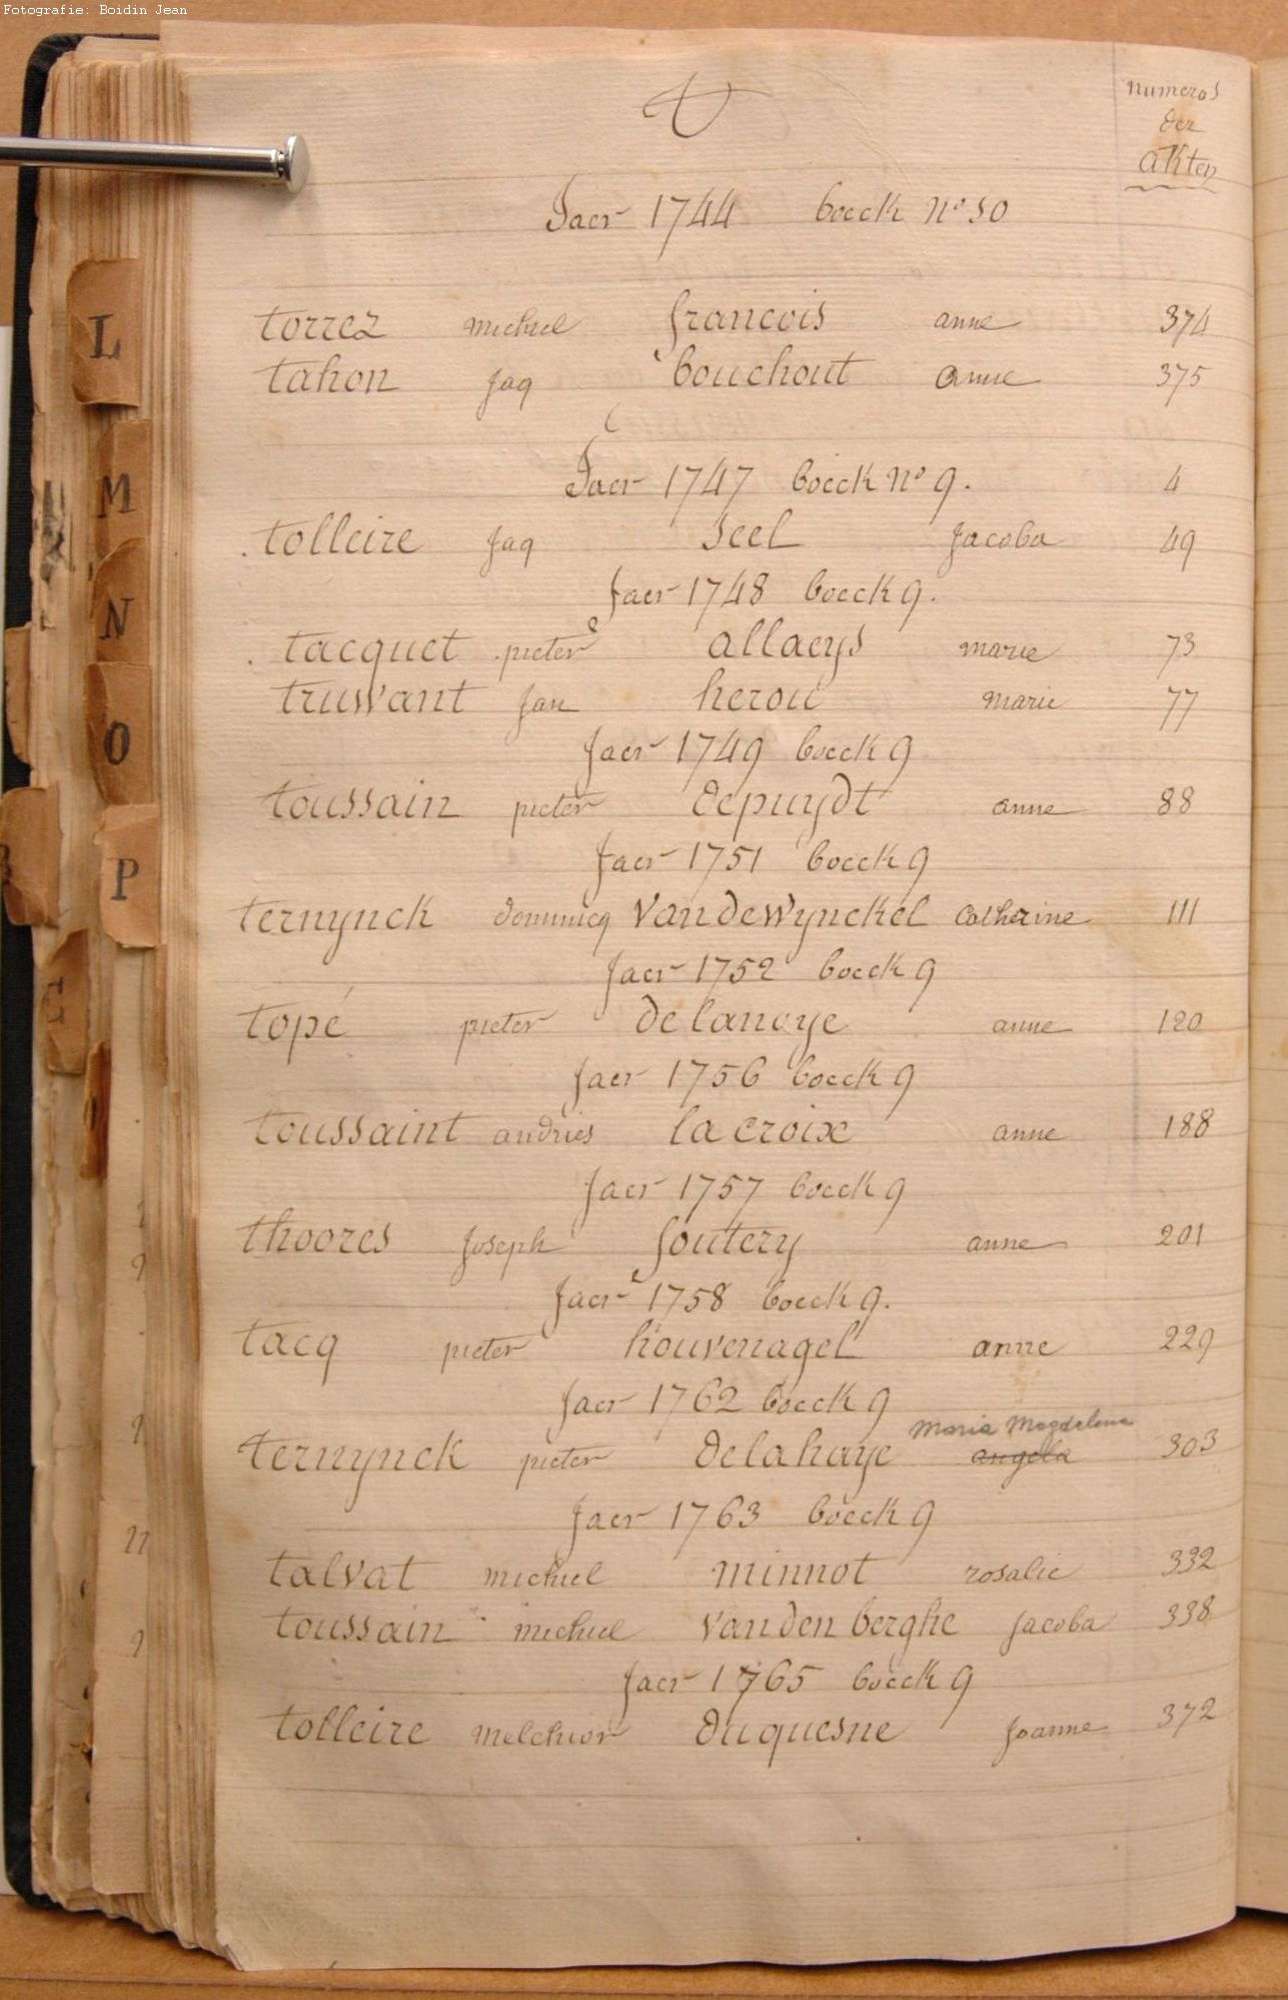 Fotografie: Boidin Jean
T
numeros
der
akten
Jaer 1744 boeck No 50
torrez michiel francois anne 374
tahon jaq bouchout anne 375
Jaer 1747 boeck No 9. 4
tolleire jaq seel jacoba 49
jaer 1748 boeck 9.
tacquet pieter allaeys marie 73
truwant jan herou marie 77
jaer 1749 boeck 9
toussain pieter depuydt anne 88
jaer 1751 boeck 9
ternynck dominicq vandewynckel catherine 111
jaer 1752 boeck 9
topé pieter delanoye anne 120
jaer 1756 boeck 9
toussaint andries lacroix anne 188
jaer 1757 boeck 9
thoores joseph soutery anne 201
jaer 1758 boeck 9.
tacq pieter houvenagel anne 229
jaer 1762 boeck 9
Maria Magdalena
ternynck pieter delahaye angela 303
jaer 1763 boeck 9
talvat michiel minnot rosalie 332
toussain michiel vanden berghe jacoba 338
jaer 1765 boeck 9
tolleire melchior duquesne joanne 372
L
M
N
O
P